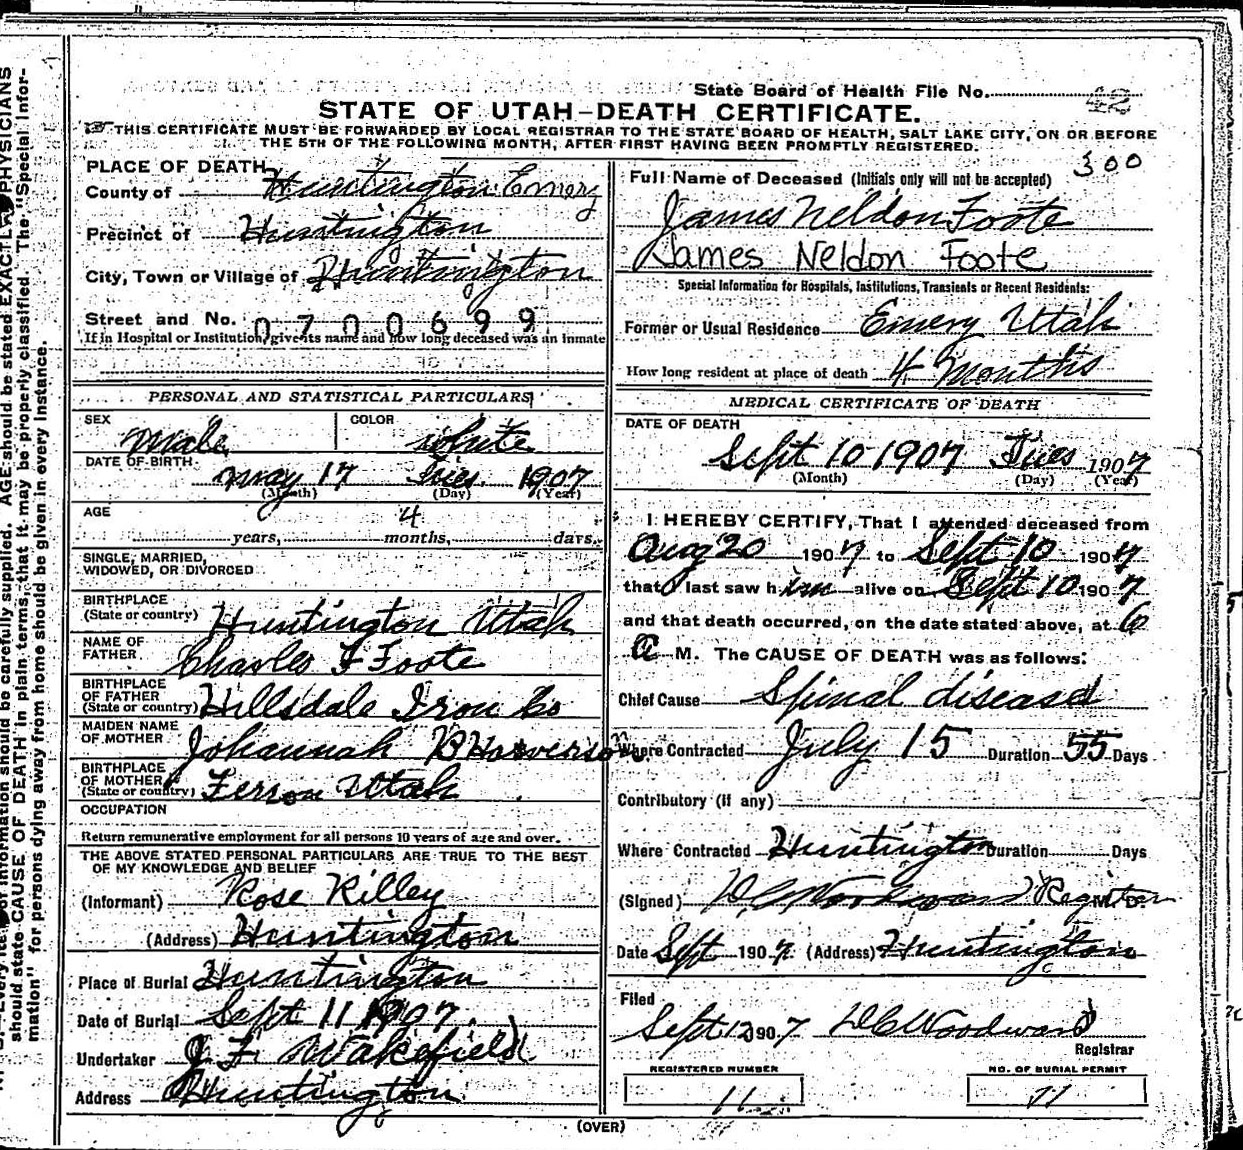 State Board of Health File No. 42
STATE OF UTAH—DEATH CERTIFICATE.
THIS CERTIFICATE MUST BE FORWARDED BY LOCAL REGISTRAR TO THE STATE BOARD OF HEALTH, SALT LAKE CITY, ON OR BEFORE
THE 5TH OF THE FOLLOWING MONTH, AFTER FIRST HAVING BEEN PROMPTLY REGISTERED.
PLACE OF DEATH
County of Huntington Emery
Precinct of Huntington
City, Town or Village of Huntington
Street and No. 0700699
If in Hospital or Institution, give its name and how long deceased was an inmate
PERSONAL AND STATISTICAL PARTICULARS
SEX Male COLOR white
DATE OF BIRTH May 17 Fries 1907
(Month) (Day) (Year)
AGE 4
years, months, days.
SINGLE, MARRIED,
WIDOWED, OR DIVORCED
BIRTHPLACE
(State or country) Huntington Utah
NAME OF
FATHER Charles F Foote
BIRTHPLACE
OF FATHER
(State or country) Hillsdale Iron Co
MAIDEN NAME
OF MOTHER Johannah B Halverson
BIRTHPLACE
OF MOTHER
(State or country) Ferron Utah
OCCUPATION
Return remunerative employment for all persons 10 years of age and over.
THE ABOVE STATED PERSONAL PARTICULARS ARE TRUE TO THE BEST
OF MY KNOWLEDGE AND BELIEF
(Informant) Rose Killey
(Address) Huntington
Place of Burial Huntington
Date of Burial Sept 11 1907
Undertaker J F Wakefield
Address Huntington
300
Full Name of Deceased (Initials only will not be accepted)
James Neldon Foote
James Neldon Foote
Special Information for Hospitals, Institutions, Transients or Recent Residents:
Former or Usual Residence Emery Utah
How long resident at place of death 4 Months
MEDICAL CERTIFICATE OF DEATH
DATE OF DEATH
Sept 10 1907 Tues 1907
(Month) (Day) (Year)
I HEREBY CERTIFY, That I attended deceased from
Aug 20 1907 to Sept 10 1907
that I last saw him alive on Sept 10 1907
and that death occurred, on the date stated above, at 6
a M. The CAUSE OF DEATH was as follows:
Chief Cause Spinal disease
Where Contracted July 15 Duration 55 Days
Contributory (if any)
Where Contracted Huntington Duration Days
(Signed) D C Woodward Register M. D.
Date Sept 1907 (Address) Huntington
Filed
Sept 12 1907 D C Woodward
Registrar
REGISTERED NUMBER NO. OF BURIAL PERMIT
11 11
(OVER)
should state CAUSE OF DEATH in plain terms, that it may be properly classified. The "Special Infor-
mation" for persons dying away from home should be given in every instance.